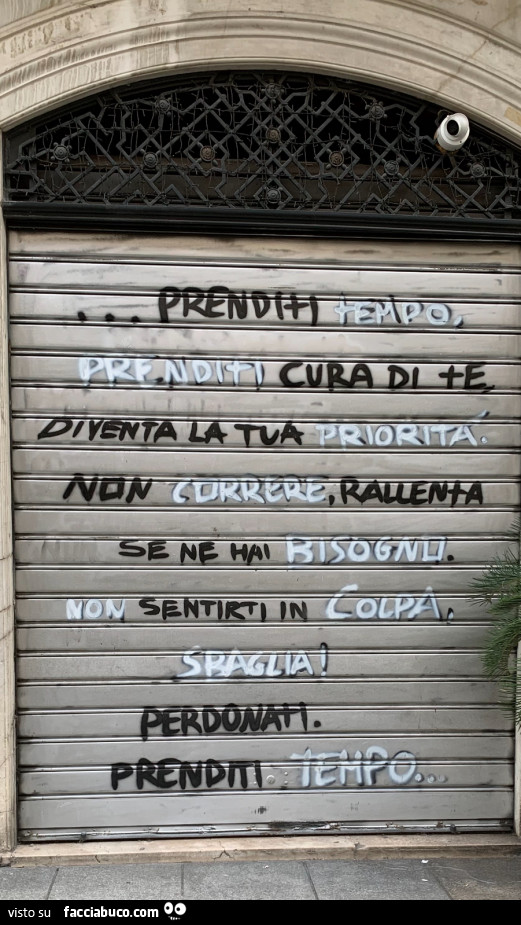 ... PRENDITI TEMPO,
PRENDITI CURA DI TE,
DIVENTA LA TUA PRIORITÁ.
NON CORRERE, RALLENTA
SE NE HAI BISOGNO.
NON SENTIRTI IN COLPA,
SBAGLIA!
PERDONATI.
PRENDITI TEMPO...
visto su facciabuco.com